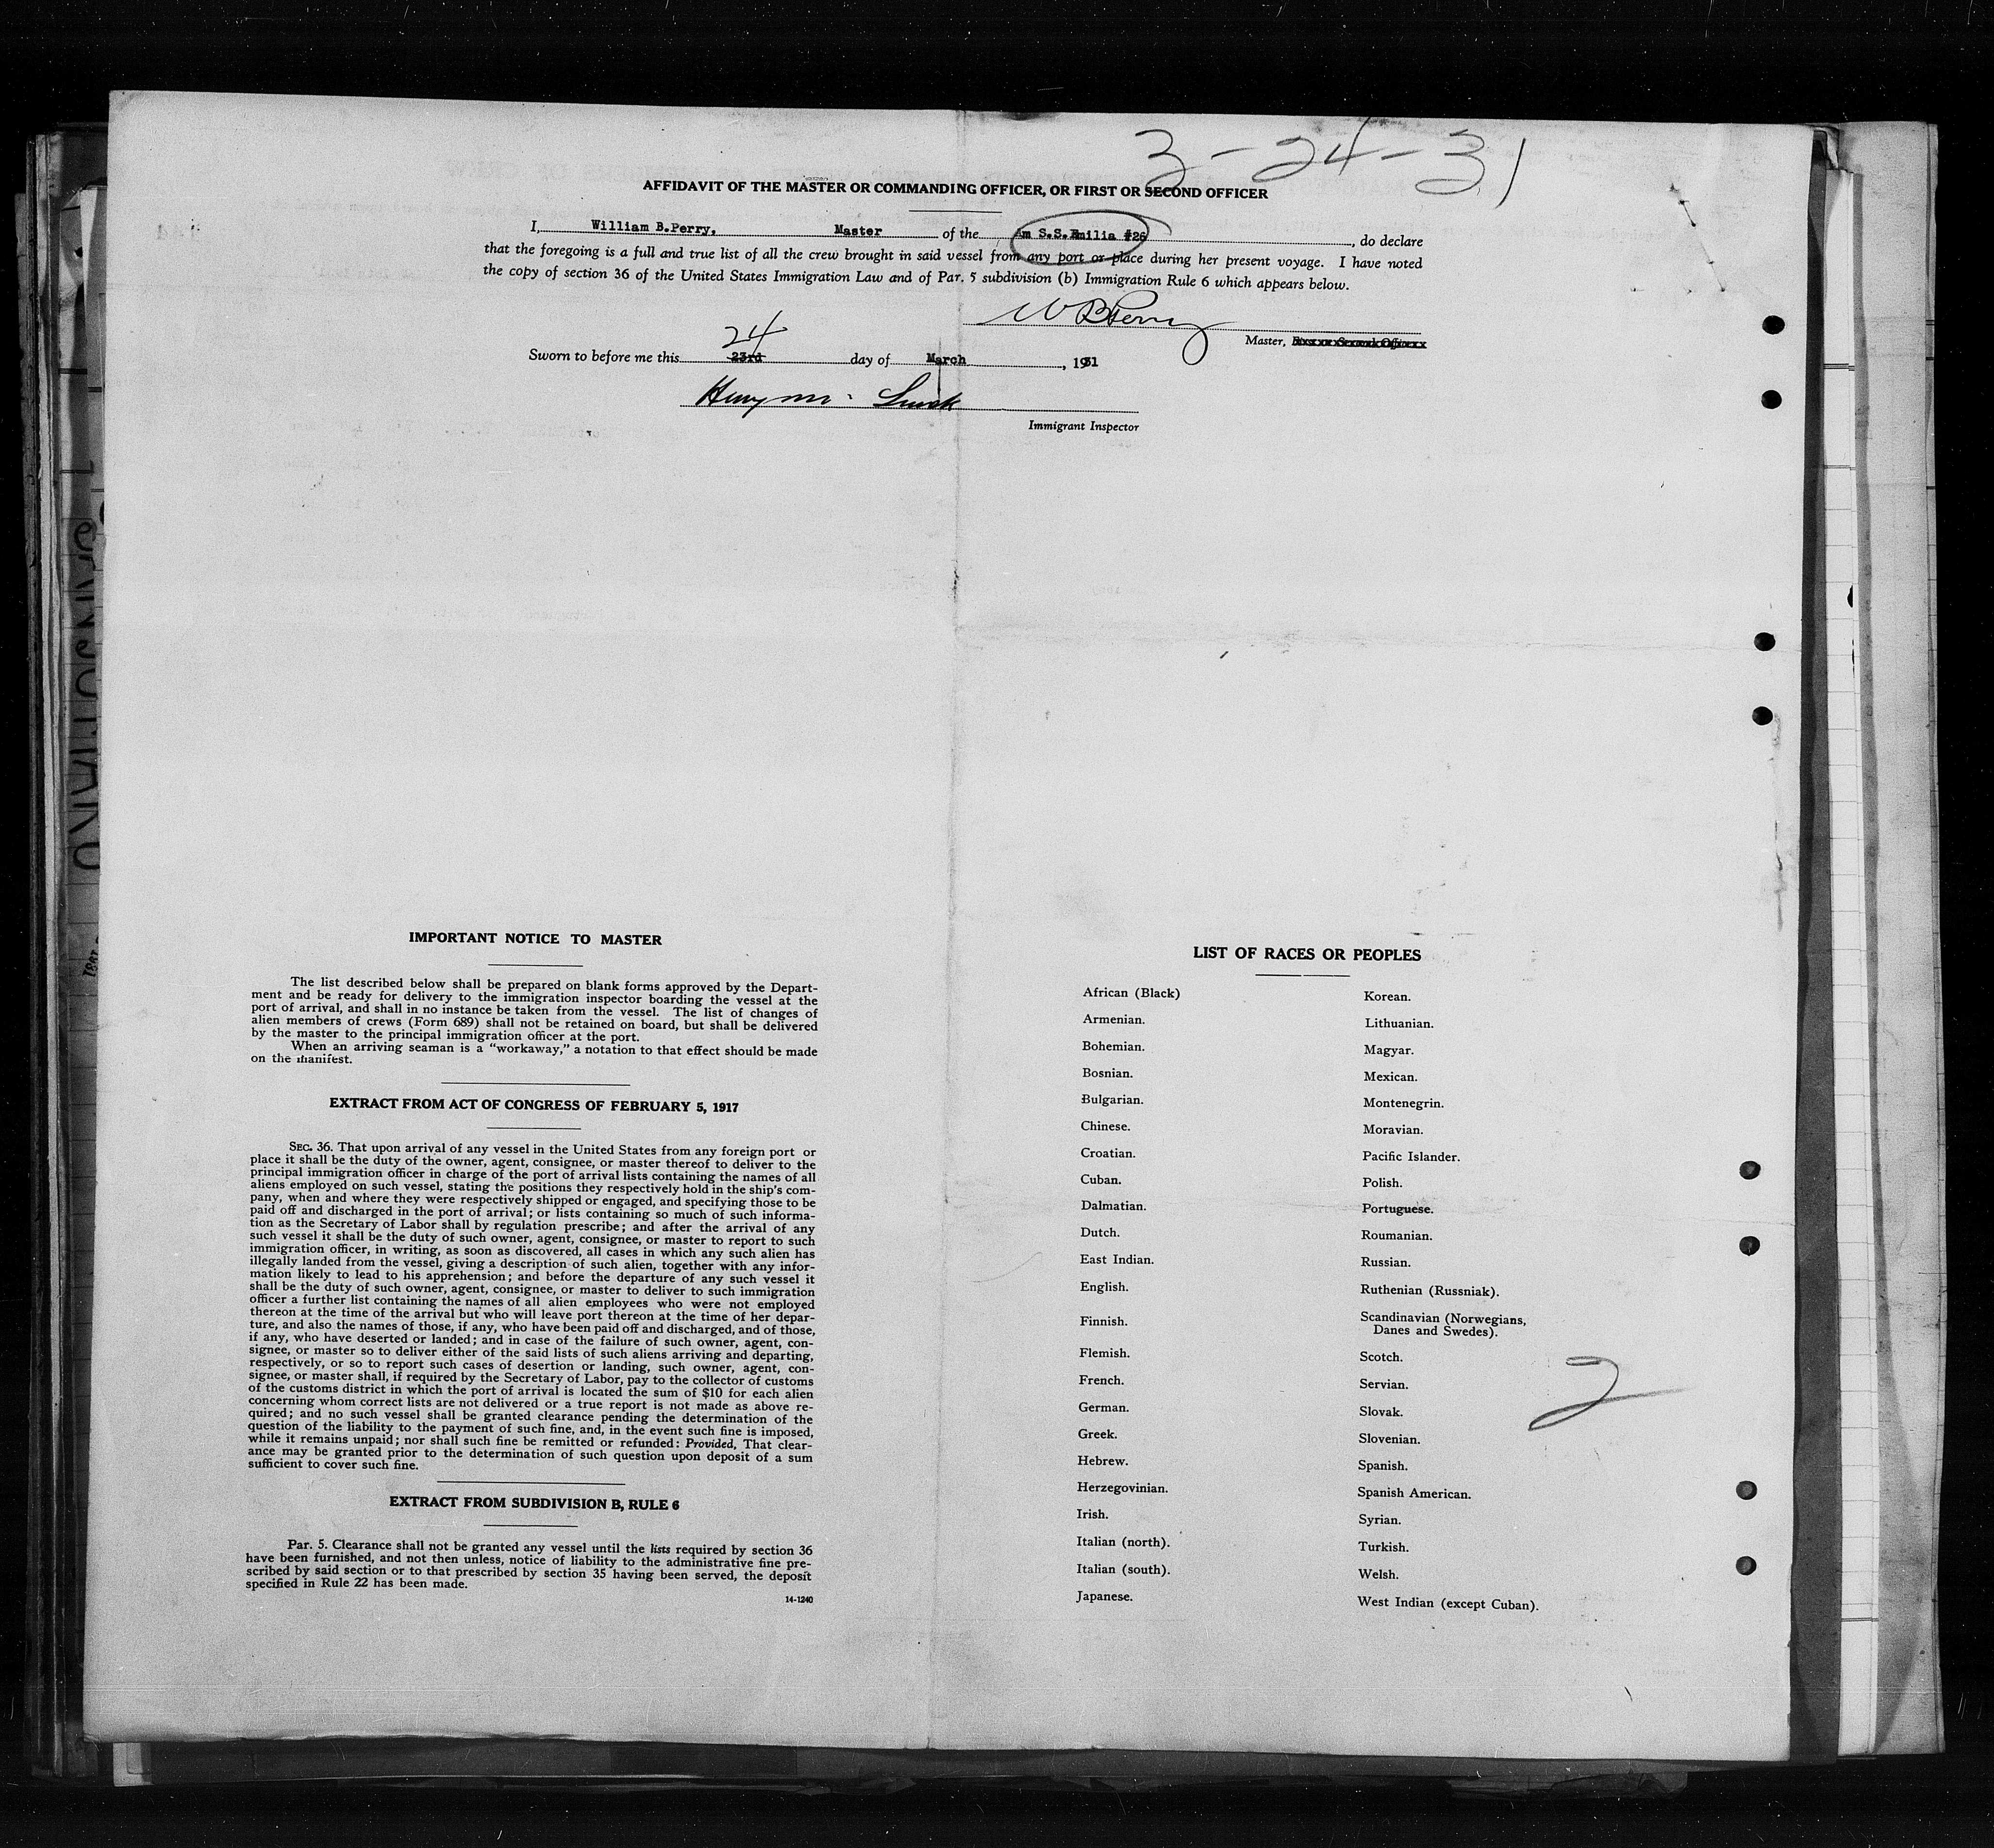 3-24-31
AFFIDAVIT OF THE MASTER OR COMMANDING OFFICER, OR FIRST OR SECOND OFFICER
I, William B.Perry, Master of the Am S.S.Emilia #26, do declare
that the foregoing is a full and true list of all the crew brought in said vessel from any port or place during her present voyage. I have noted
the copy of section 36 of the United States Immigration Law and of Par. 5 subdivision (b) Immigration Rule 6 which appears below.
W B Perry
Master,
24
Sworn to before me this 23rd day of March, 1931
Henry M.
Immigrant Inspector
IMPORTANT NOTICE TO MASTER
The list described below shall be prepared on blank forms approved by the Depart-
ment and be ready for delivery to the immigration inspector boarding the vessel at the
port of arrival, and shall in no instance be taken from the vessel. The list of changes of
alien members of crews (Form 689) shall not be retained on board, but shall be delivered
by the master to the principal immigration officer at the port.
When an arriving seaman is a "workaway," a notation to that effect should be made
on the manifest.
EXTRACT FROM ACT OF CONGRESS OF FEBRUARY 5, 1917
SEC. 36. That upon arrival of any vessel in the United States from any foreign port or
place it shall be the duty of the owner, agent, consignee, or master thereof to deliver to the
principal immigration officer in charge of the port of arrival lists containing the names of all
aliens employed on such vessel, stating the positions they respectively hold in the ship's com-
pany, when and where they were respectively shipped or engaged, and specifying those to be
paid off and discharged in the port of arrival; or lists containing so much of such informa-
tion as the Secretary of Labor shall by regulation prescribe; and after the arrival of any
such vessel it shall be the duty of such owner, agent, consignee, or master to report to such
immigration officer, in writing, as soon as discovered, all cases in which any such alien has
illegally landed from the vessel, giving a description of such alien, together with any infor-
mation likely to lead to his apprehension; and before the departure of any such vessel it
shall be the duty of such owner, agent, consignee, or master to deliver to such immigration
officer a further list containing the names of all alien employees who were not employed
thereon at the time of the arrival but who will leave port thereon at the time of her depar-
ture, and also the names of those, if any, who have been paid off and discharged, and of those,
if any, who have deserted or landed; and in case of the failure of such owner, agent, con-
signee, or master so to deliver either of the said lists of such aliens arriving and departing,
respectively, or so to report such cases of desertion or landing, such owner, agent, con-
signee, or master shall, if required by the Secretary of Labor, pay to the collector of customs
of the customs district in which the port of arrival is located the sum of $10 for each alien
concerning whom correct lists are not delivered or a true report is not made as above re-
quired; and no such vessel shall be granted clearance pending the determination of the
question of the liability to the payment of such fine, and, in the event such fine is imposed,
while it remains unpaid; nor shall such fine be remitted or refunded: Provided, That clear-
ance may be granted prior to the determination of such question upon deposit of a sum
sufficient to cover such fine.
EXTRACT FROM SUBDIVISION B, RULE 6
Par. 5. Clearance shall not be granted any vessel until the lists required by section 36
have been furnished, and not then unless, notice of liability to the administrative fine pre-
scribed by said section or to that prescribed by section 35 having been served, the deposit
specified in Rule 22 has been made.
14-1240
LIST OF RACES OR PEOPLES
African (Black)
Armenian.
Bohemian.
Bosnian.
Bulgarian.
Chinese.
Croatian.
Cuban.
Dalmatian.
Dutch.
East Indian.
English.
Finnish.
Flemish.
French.
German.
Greek.
Hebrew.
Herzegovinian.
Irish.
Italian (north).
Italian (south).
Japanese.
Korean.
Lithuanian.
Magyar.
Mexican.
Montenegrin.
Moravian.
Pacific Islander.
Polish.
Portuguese.
Roumanian.
Russian.
Ruthenian (Russniak).
Scandinavian (Norwegians,
Danes and Swedes).
Scotch.
Servian.
Slovak.
Slovenian.
Spanish.
Spanish American.
Syrian.
Turkish.
Welsh.
West Indian (except Cuban).
2